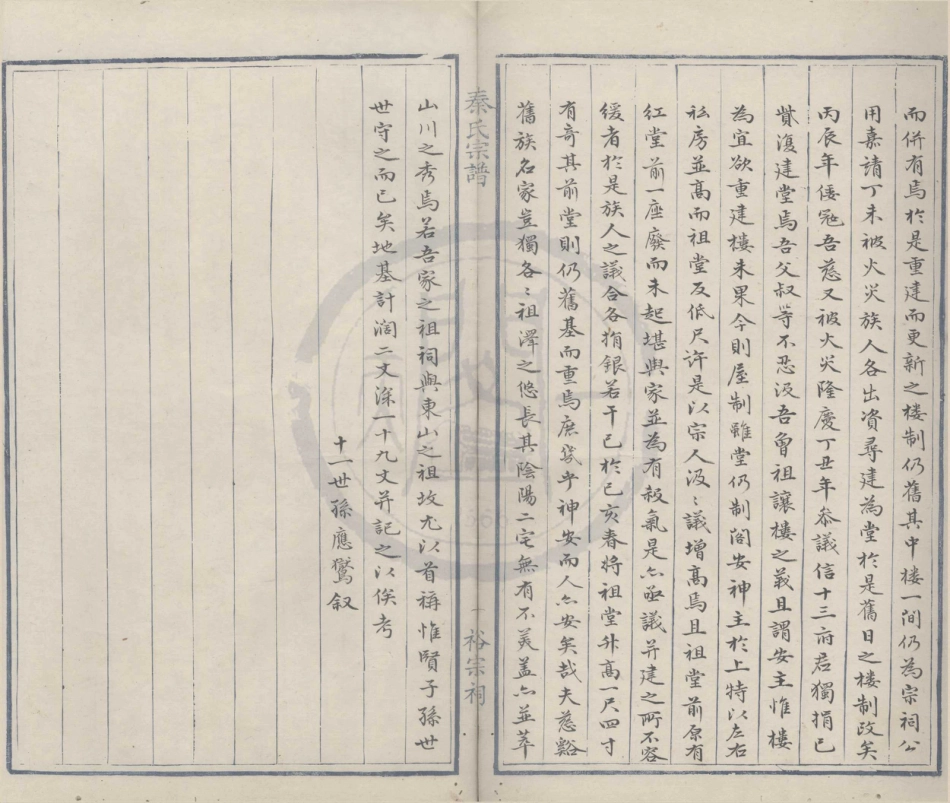 而併有焉於是重建而更新之楼制仍舊其中楼一間仍為宗祠公
用嘉請丁未被火災族人各出資尋建為堂於是舊日之楼制政矣
丙辰年倭冦吾慈又被火災隆慶丁丑年叅議信十三府君獨捐已
貲復建堂焉吾父叔等不忍没吾曾祖讓樓之義且謂安主惟樓
為宜欲重建樓未果今則屋制雖堂仍制阁安神主於上特以左右
私房並髙而祖堂反低尺許是以宗人汲〻議增髙焉且祖堂前原有
紅堂前一座廢而未起堪輿家並為有殺氣是亦亟議并建之所不容
缓者於是族人之議合各捐銀若干已於己亥春将祖堂升高一尺四寸
有奇其前堂則仍舊基而重焉庶㡬乎神安而人亦安矣哉夫慈谿
舊族名家豈獨各〻祖澤之悠長其陰陽二宅無有不美盖亦並萃
秦氏宗譜
一
裕宗祠
山川之秀焉若吾家之祖祠與東山之祖坟尤以首稱惟賢子孫世
世守之而已矣地基計阔二丈深一十九丈并記之以俟考
十一世孫應鸞叙